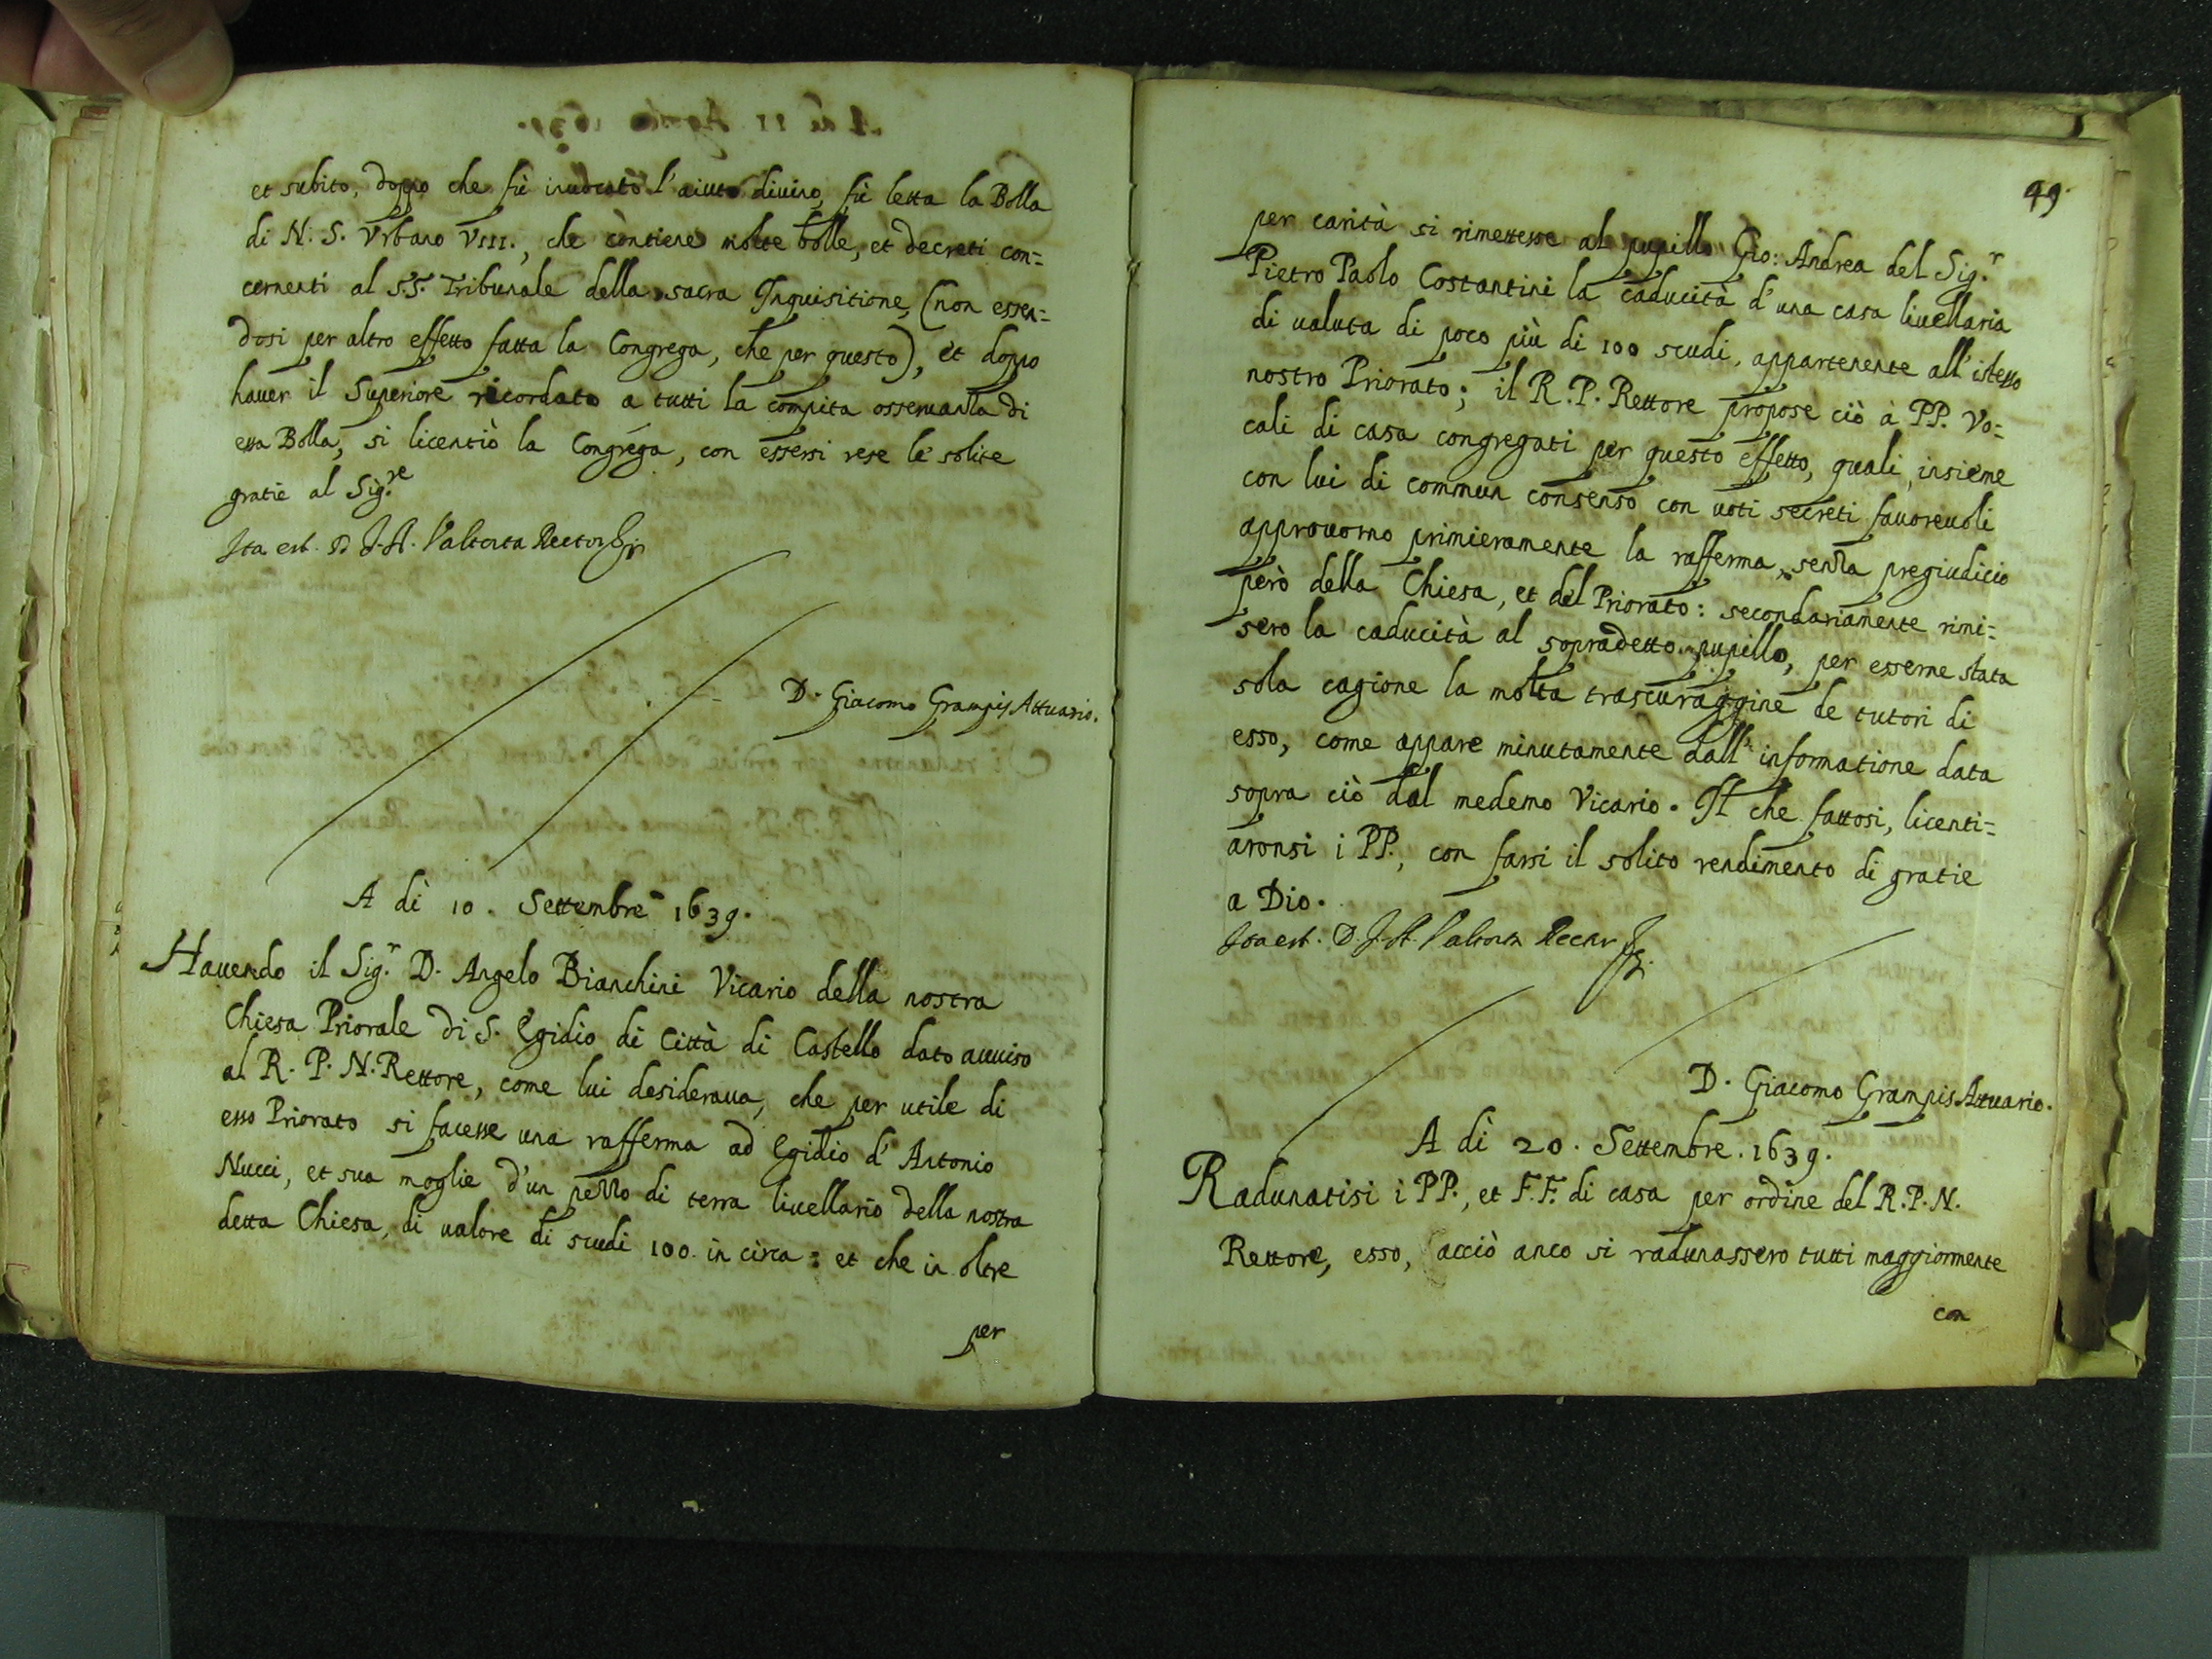 et subito, doppo che fù inuocato l'aiuto diuino, fù letta la Bolla
di N. S. Vrbano VIII., che contiene molte bolle, et decreti con=
cernenti al S.S. Tribunale della sacra Inquisitione, (non essen=
dosi per altro effetto fatta la Congrega, che per questo), et doppo
hauer il Superiore ricordato a tutti la compita osseruanza di
essa Bolla, si licentiò la Congrega, con essersi rese le solite
gratie al Sig.re
Ita est. D. J. A. Valtorta Rector
D. Giacomo Grampis Attuario.
A dì 10. Settembre 1639.
Hauendo il Sig.r D. Angelo Bianchini Vicario della nostra
Chiesa Priorale di S. Egidio di Città di Castello dato auuiso
al R. P. N. Rettore, come lui desideraua, che per utile di
esso Priorato si facesse una rafferma ad Egidio d'Antonio
Nucci, et sua moglie d'un pezzo di terra liuellario della nostra
detta Chiesa, di ualore di scudi 100. in circa: et che in oltre
per
49.
per carità si rimettesse al pupillo Gio: Andrea del Sig.r
Pietro Paolo Costantini la caducità d'una casa liuellaria
di ualuta di poco più di 100 scudi, appartenente all'istesso
nostro Priorato; il R. P. Rettore propose ciò à PP. Vo=
cali di casa congregati per questo effetto, quali, insieme
con lui di commun consenso con uoti secreti fauoreuoli
approuorno primieramente la rafferma, senza pregiudicio
però della Chiesa, et del Priorato: secondariamente rimi=
sero la caducità al sopradetto pupillo, per esserne stata
sola cagione la molta trascuraggine de tutori di
esso, come appare minutamente dall'informatione data
sopra ciò dal medemo Vicario. Il che fattosi, licenti=
aronsi i PP., con farsi il solito rendimento di gratie
a Dio.
Ita est. D. J. A. Valtorta Rector
D. Giacomo Grampis Attuario.
A dì 20. Settembre. 1639.
Radunatisi i PP., et F.F. di casa per ordine del R. P. N.
Rettore, esso, acciò anco si radunassero tutti maggiormente
con